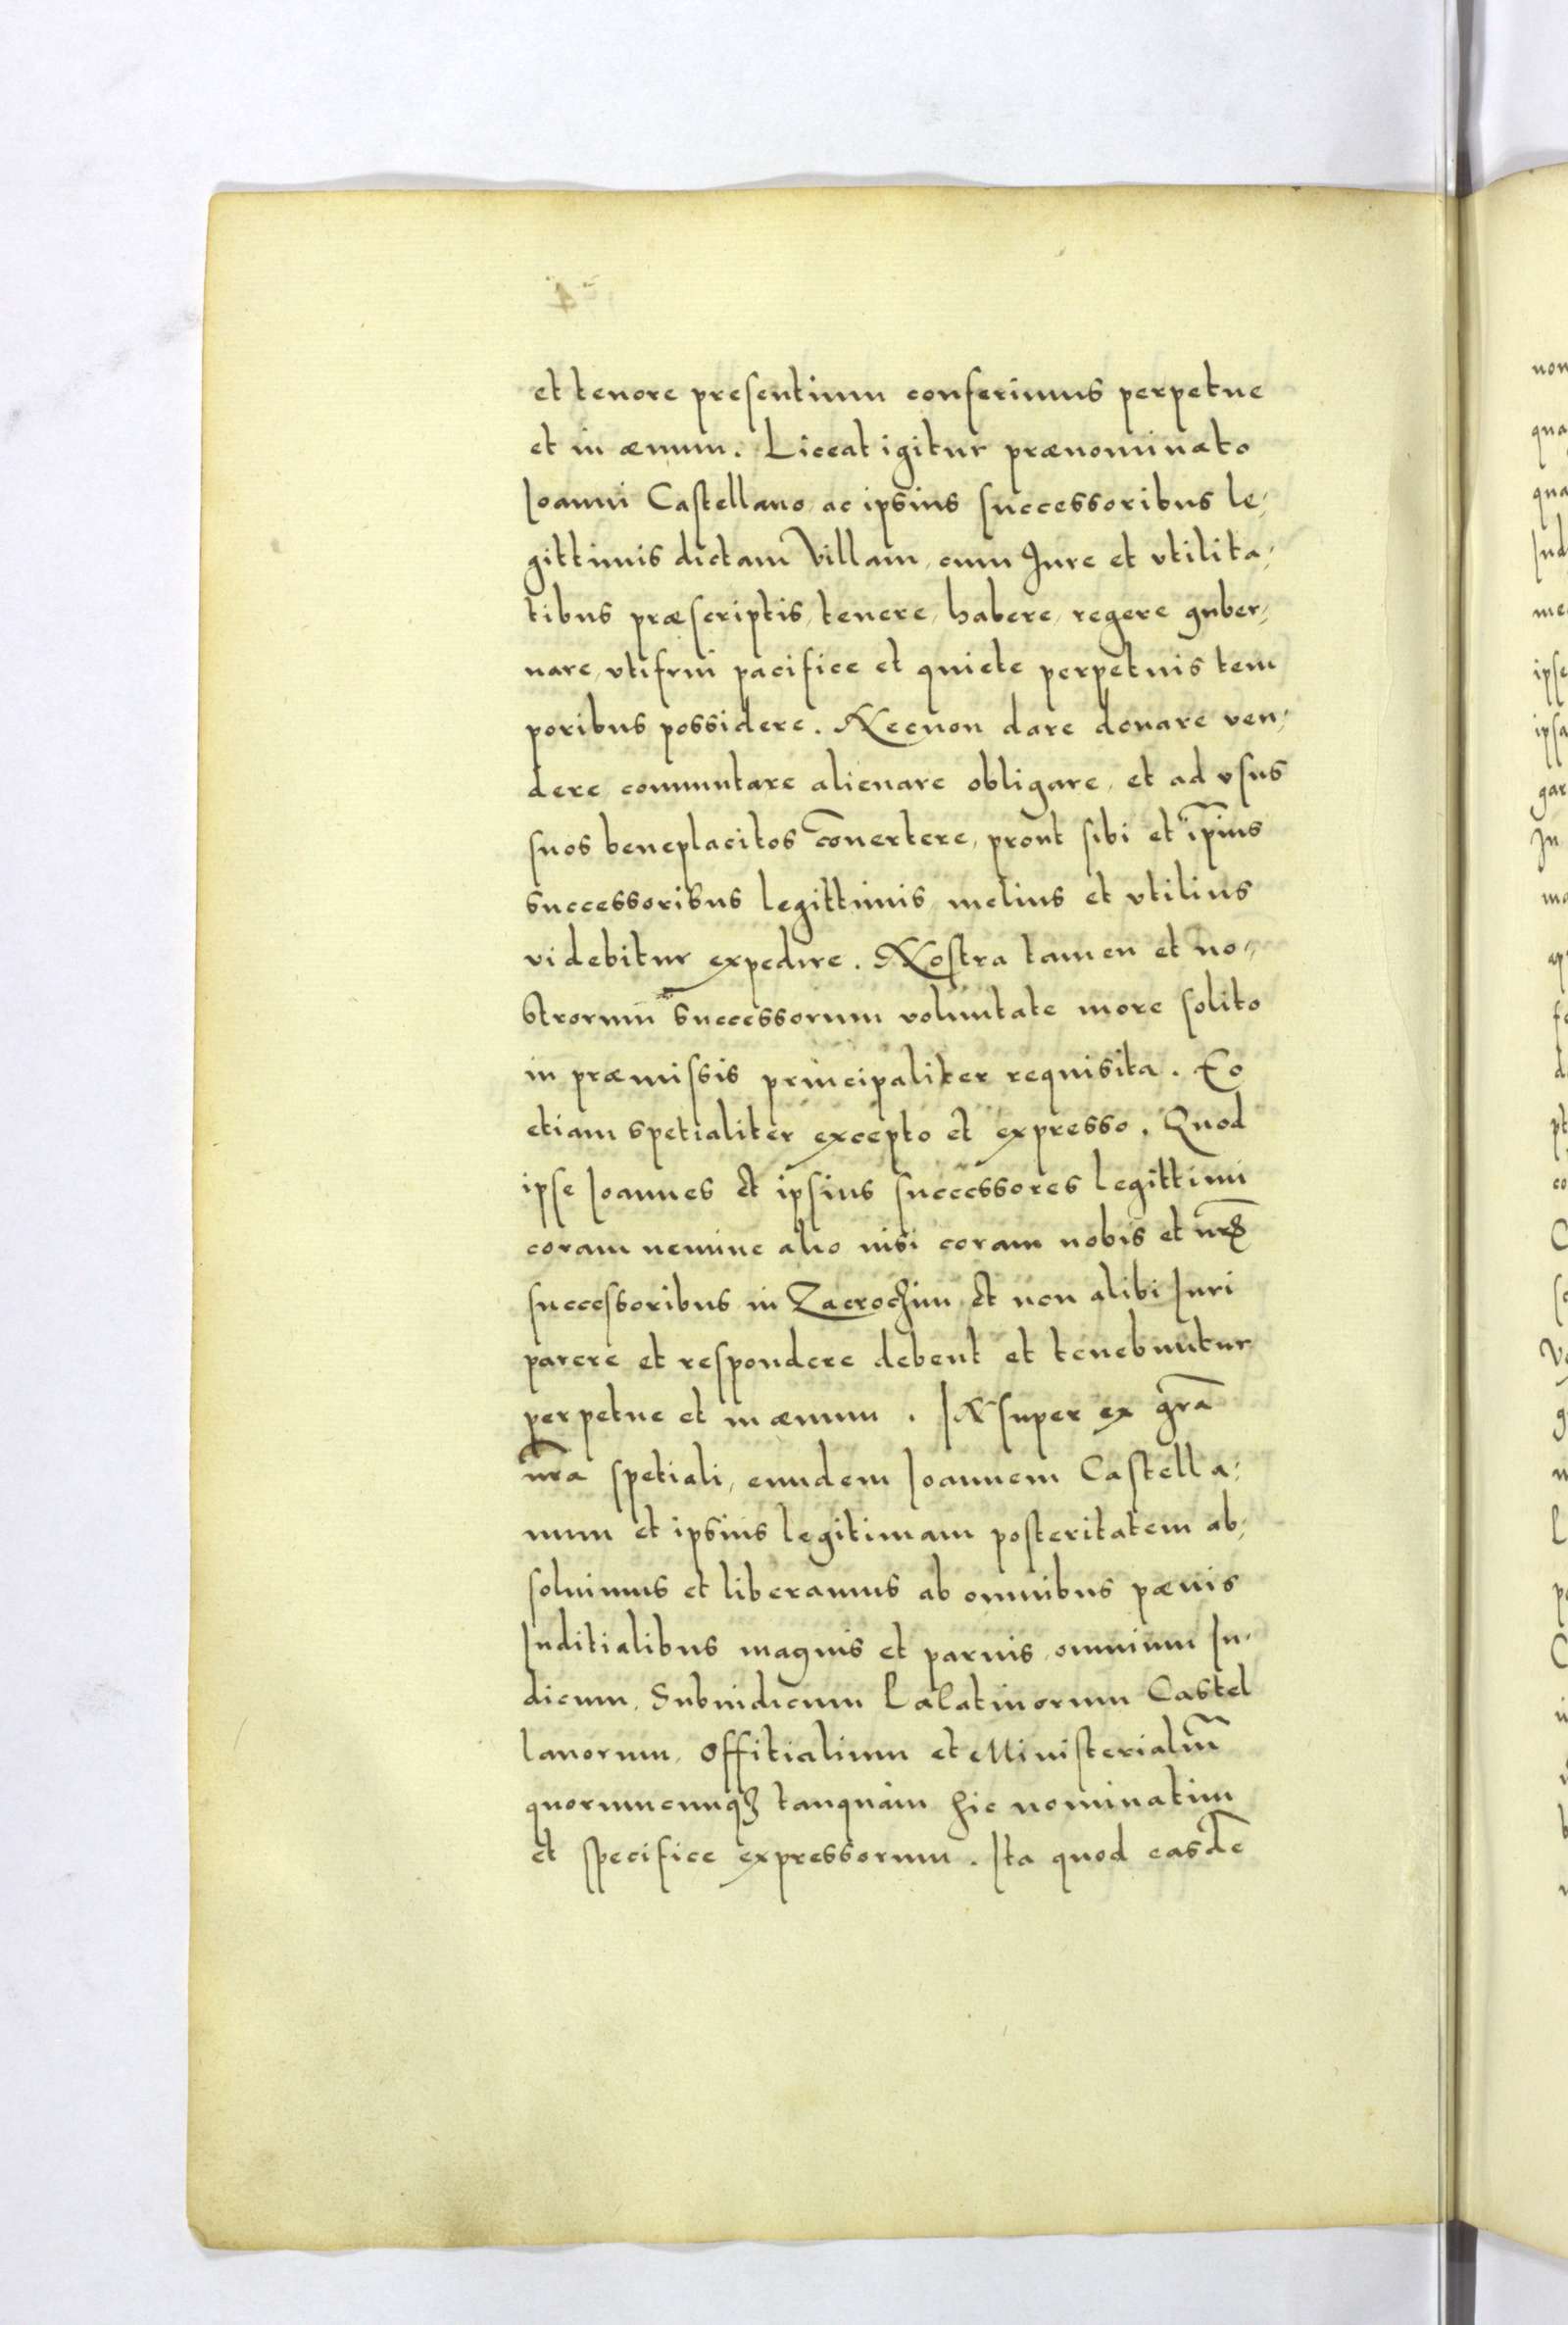 et tenore presentium conferimus perpetue
et in æuum. Liceat igitur prænominato
Joanni Castellano ac ipsius successoribus le-
gittimis dictam Villam, cum Jure et vtilita-
tibus præscriptis, tenere, habere, regere guber-
nare, vtifrui pacifice et quiete perpetuis tem
poribus possidere. Necnon dare donare ven-
dere commutare alienare obligare, et ad vsus
suos beneplacitos cōuertere, prout sibi et ip̄ius
successoribus legittimis melius et vtilius
videbitur expedire. Nostra tamen et no-
strorum successorum voluntate more solito
in præmissis principaliter requisita. Eo
etiam spetialiter excepto et expresso. Quod
ipse Joannes et ipsius successores legittimi
coram nemine alio nisi coram nobis et nr̄is
successoribus in Zacrochim et non alibi Juri
parere et respondere debent et tenebuntur
perpetue et in æuum. INsuper ex gr̄a
nr̄a spetiali, eundem Joannem Castella-
num et ipsius legitimam posteritatem ab-
soluimus et liberamus ab omnibus pænis
Juditialibus magnis et paruis, omnium Ju-
dicum, Subiudicum Palatinorum Castel
lanorum, Offitialium et Ministerialiū
quorumcunqꝫ tanquam hic nominatim
et specifice expressorum. Ita quod easdē